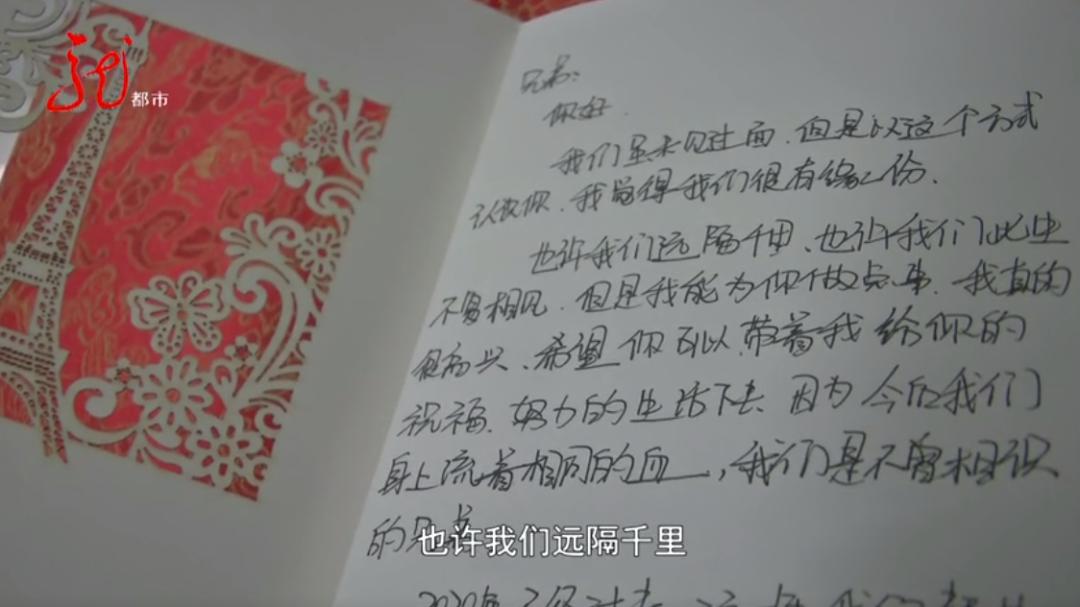 都市
兄弟：
你好.
我们虽未见过面.但是以这个方式
认识你.我觉得我们很有缘份.
也许我们远隔千里.也许我们此生
不曾相见.但是我能为你做点事.我真的
很高兴.希望你可以带着我给你的
祝福.努力的生活下去.因为今后我们
身上流着相同的血，我们是不曾相识
的兄弟
也许我们远隔千里
2020年